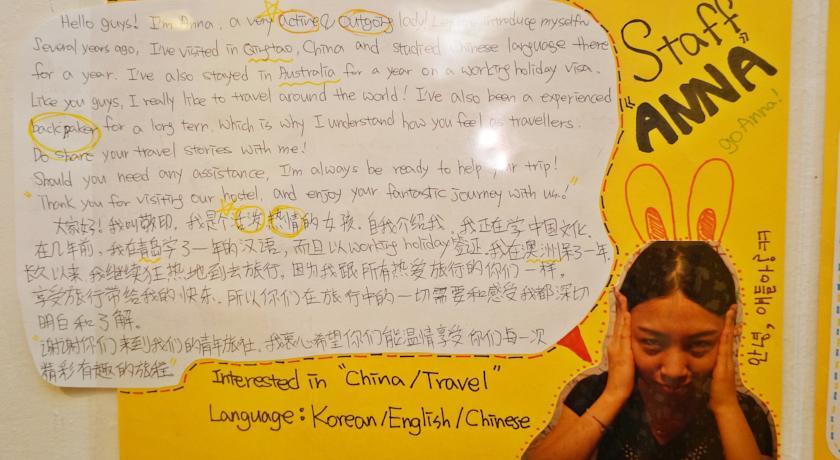 Hello guys! I'm Anna, a very active & outgoing lady! Let me introduce myself~
Several years ago, I've visited in Qingtao, China and studied Chinese language there
for a year. I've also stayed in Australia for a year on a working holiday visa.
Like you guys, I really like to travel around the world! I've also been a experienced
backpaker for a long term. which is why I understand how you feel as travellers.
Do share your travel stories with me!
Should you need any assistance, I'm always be ready to help your trip!
"Thank you for visiting our hostel, and enjoy your fantastic journey with us!"
大家好! 我叫敬印, 我是个活泼热情的女孩. 自我介绍我, 我正在学中国文化.
在几年前, 我在青岛学了一年的汉语, 而且以working holiday签证, 我在澳洲呆了一年.
长久以来, 我继续狂热地到去旅行, 因为我跟所有热爱旅行的你们一样.
享受旅行带给我的快乐. 所以你们在旅行中的一切需要和感受我都深切
明白和了解.
"谢谢你们来到我们的青年旅社, 我衷心希望你们能温情享受你们每一次
精彩有趣的旅程"
Interested in "China/Travel"
Language: Korean/English/Chinese
Staff
"ANNA"
go Anna!